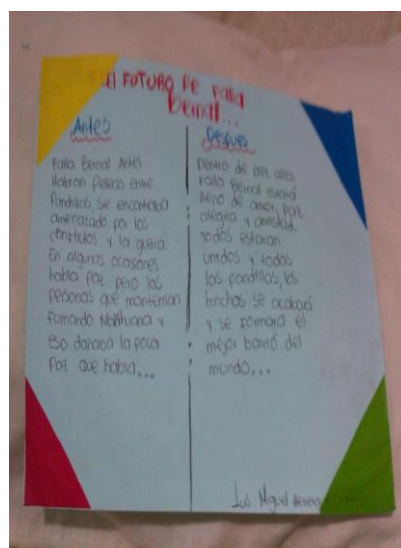 El FUTURO DE Falla
Bernal...
Antes
Falla Bernal Antes
Habian Peleas entre
Pandillas, se encontraba
amenazado por los
conflictos y la guerra.
En algunas ocasiones
habia Paz pero las
personas que mantenian
Fumando Marihuana y
Eso dañaba la poca
Paz que habia...
Despues
Dentro de años
Falla Bernal estará
lleno de amor, Paz
alegria y amistad,
todos estaran
unidos y todos
las pandillas, las
hinchas se acabará
y se formará el
mejor barrio del
mundo...
Luis Miguel